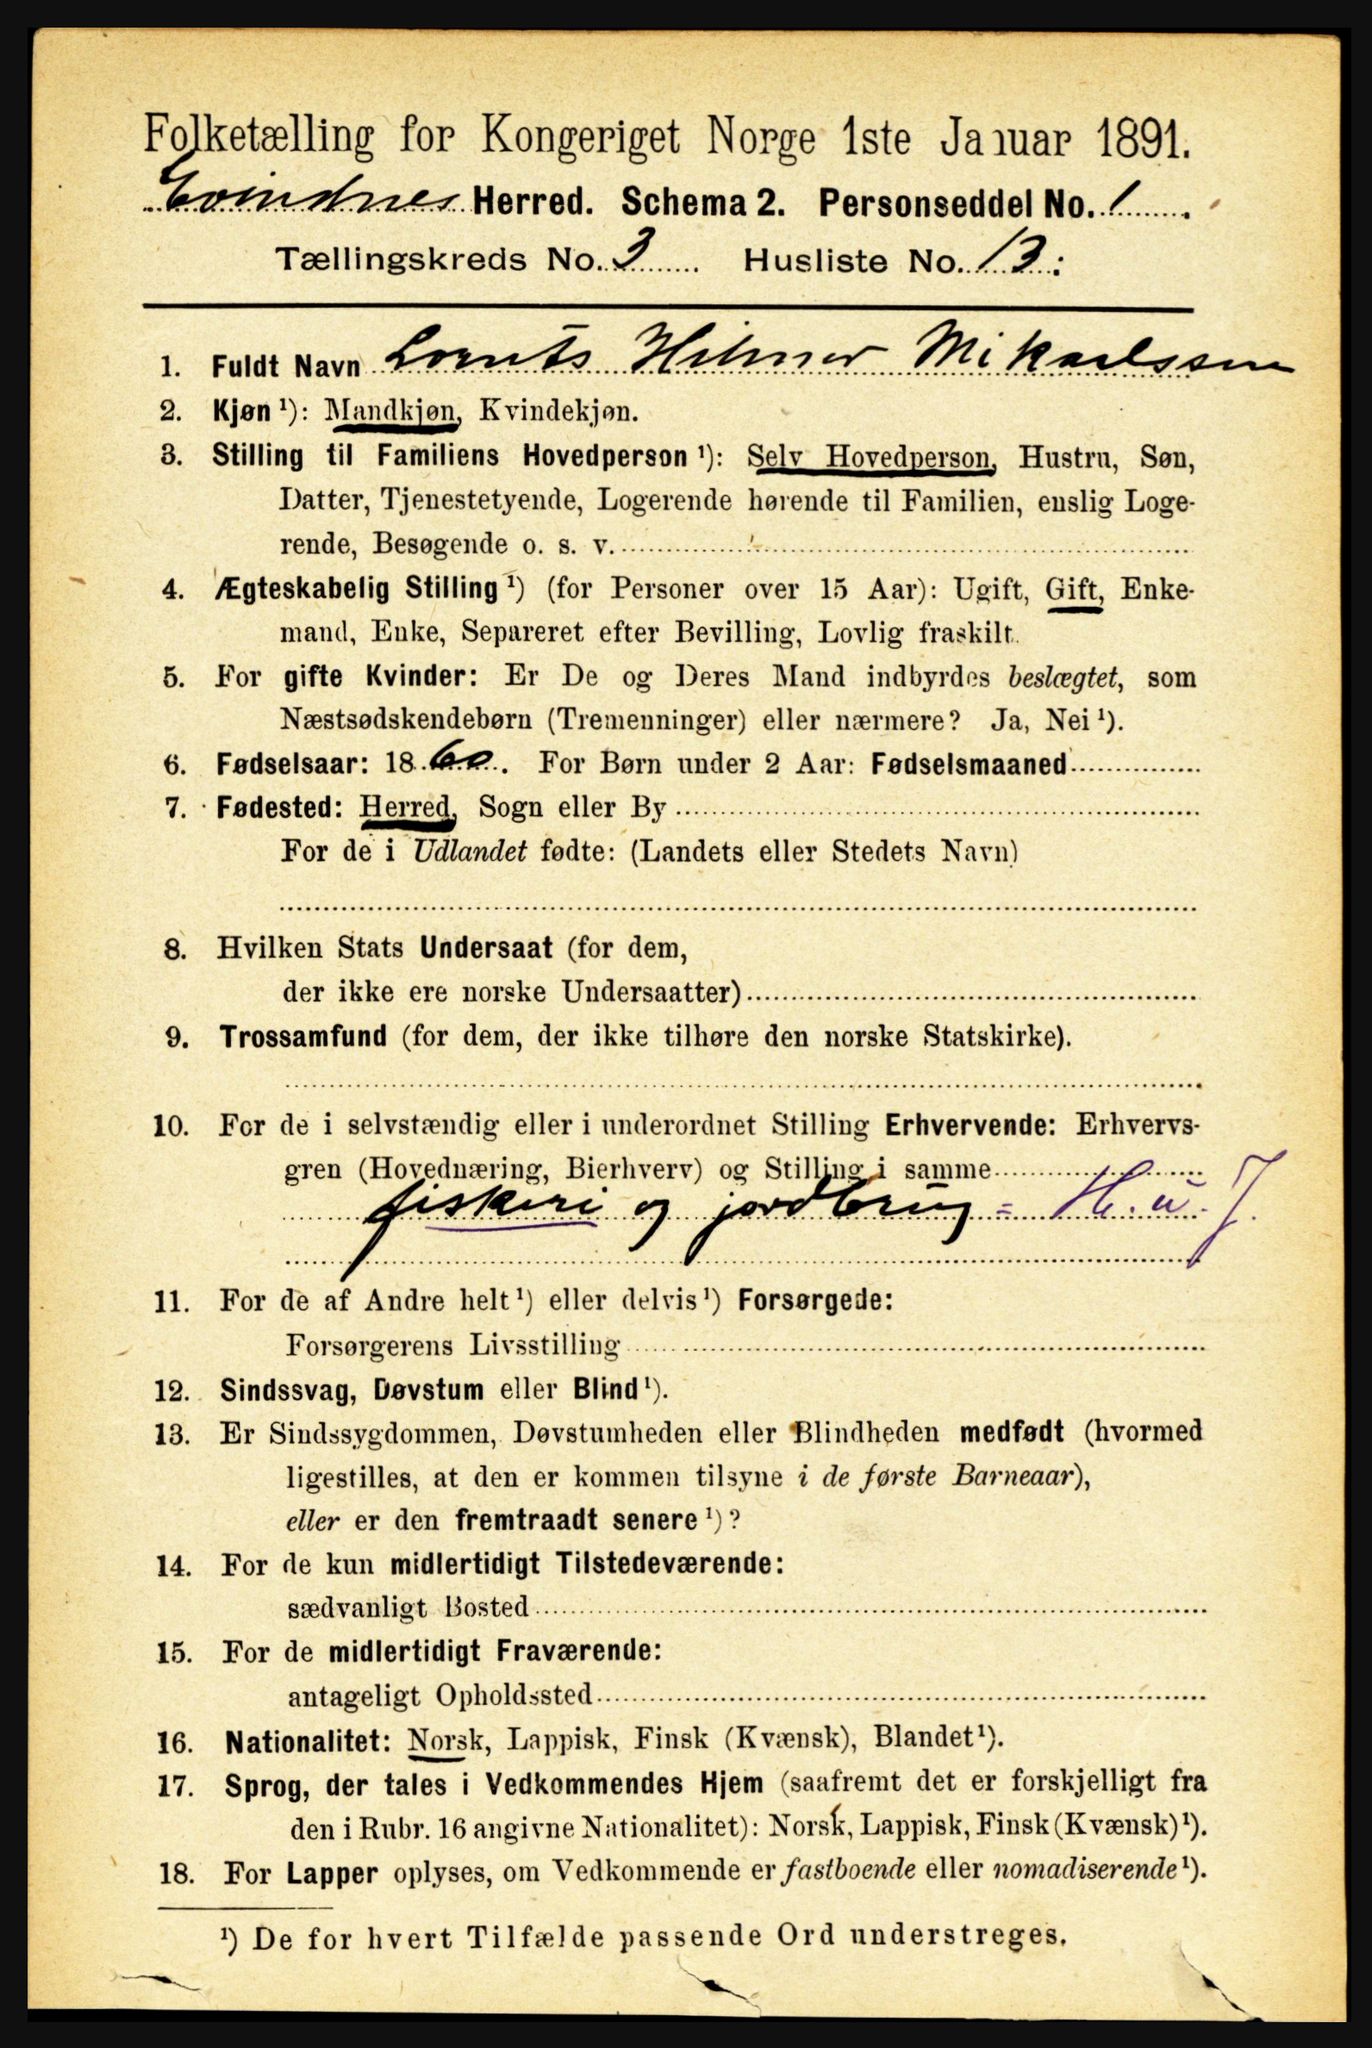 Folketælling for Kongeriget Norge 1ste Januar 1891.
Evindnes Herred. Schema 2. Personseddel No. 1.
Tællingskreds No. 3 Husliste No. 13:
1. Fuldt Navn Lorents Hilmar Mikaelssen
2. Kjøn ¹): Mandkjøn, Kvindekjøn.
3. Stilling til Familiens Hovedperson ¹): Selv Hovedperson, Hustru, Søn,
Datter, Tjenestetyende, Logerende hørende til Familien, enslig Loge-
rende, Besøgende o. s. v.
4. Ægteskabelig Stilling ¹) (for Personer over 15 Aar): Ugift, Gift, Enke-
mand, Enke, Separeret efter Bevilling, Lovlig fraskilt.
5. For gifte Kvinder: Er De og Deres Mand indbyrdes beslægtet, som
Næstsødskendebørn (Tremenninger) eller nærmere? Ja, Nei ¹).
6. Fødselsaar: 1860. For Børn under 2 Aar: Fødselsmaaned
7. Fødested: Herred, Sogn eller By
For de i Udlandet fødte: (Landets eller Stedets Navn)
8. Hvilken Stats Undersaat (for dem,
der ikke ere norske Undersaatter)
9. Trossamfund (for dem, der ikke tilhøre den norske Statskirke).
10. For de i selvstændig eller i underordnet Stilling Erhvervende: Erhvervs-
gren (Hovednæring, Bierhverv) og Stilling i samme
fiskeri og jordbrug = H. u. J.
11. For de af Andre helt ¹) eller delvis ¹) Forsørgede:
Forsørgerens Livsstilling
12. Sindssvag, Døvstum eller Blind ¹).
13. Er Sindssygdommen, Døvstumheden eller Blindheden medfødt (hvormed
ligestilles, at den er kommen tilsyne i de første Barneaar),
eller er den fremtraadt senere ¹)?
14. For de kun midlertidigt Tilstedeværende:
sædvanligt Bosted
15. For de midlertidigt Fraværende:
antageligt Opholdssted
16. Nationalitet: Norsk, Lappisk, Finsk (Kvænsk), Blandet ¹).
17. Sprog, der tales i Vedkommendes Hjem (saafremt det er forskjelligt fra
den i Rubr. 16 angivne Nationalitet): Norsk, Lappisk, Finsk (Kvænsk) ¹).
18. For Lapper oplyses, om Vedkommende er fastboende eller nomadiserende ¹).
¹) De for hvert Tilfælde passende Ord understreges.